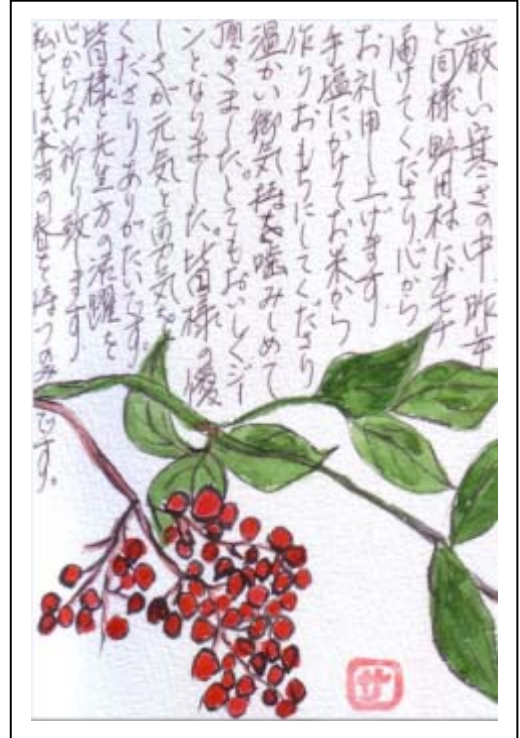 厳しい寒さの中、昨年
と同様 野田村にオモチ
届けてくださり心から
お礼申し上げます。
手塩にかけてお米から
作りおもちにしてくださり
温かい御気持を噛みしめて
頂きました。とてもおいしくジー
ンとなりました。皆様の優
しさが元気と勇気を
くださりありがたいです。
皆様と先生方の活躍を
心からお祈り致します
私どもは本当の春を待つのみです。
サ